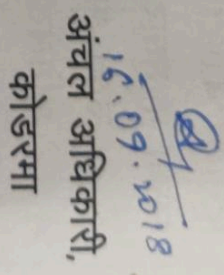 16.09.2018
अंचल अधिकारी,
कोडरमा